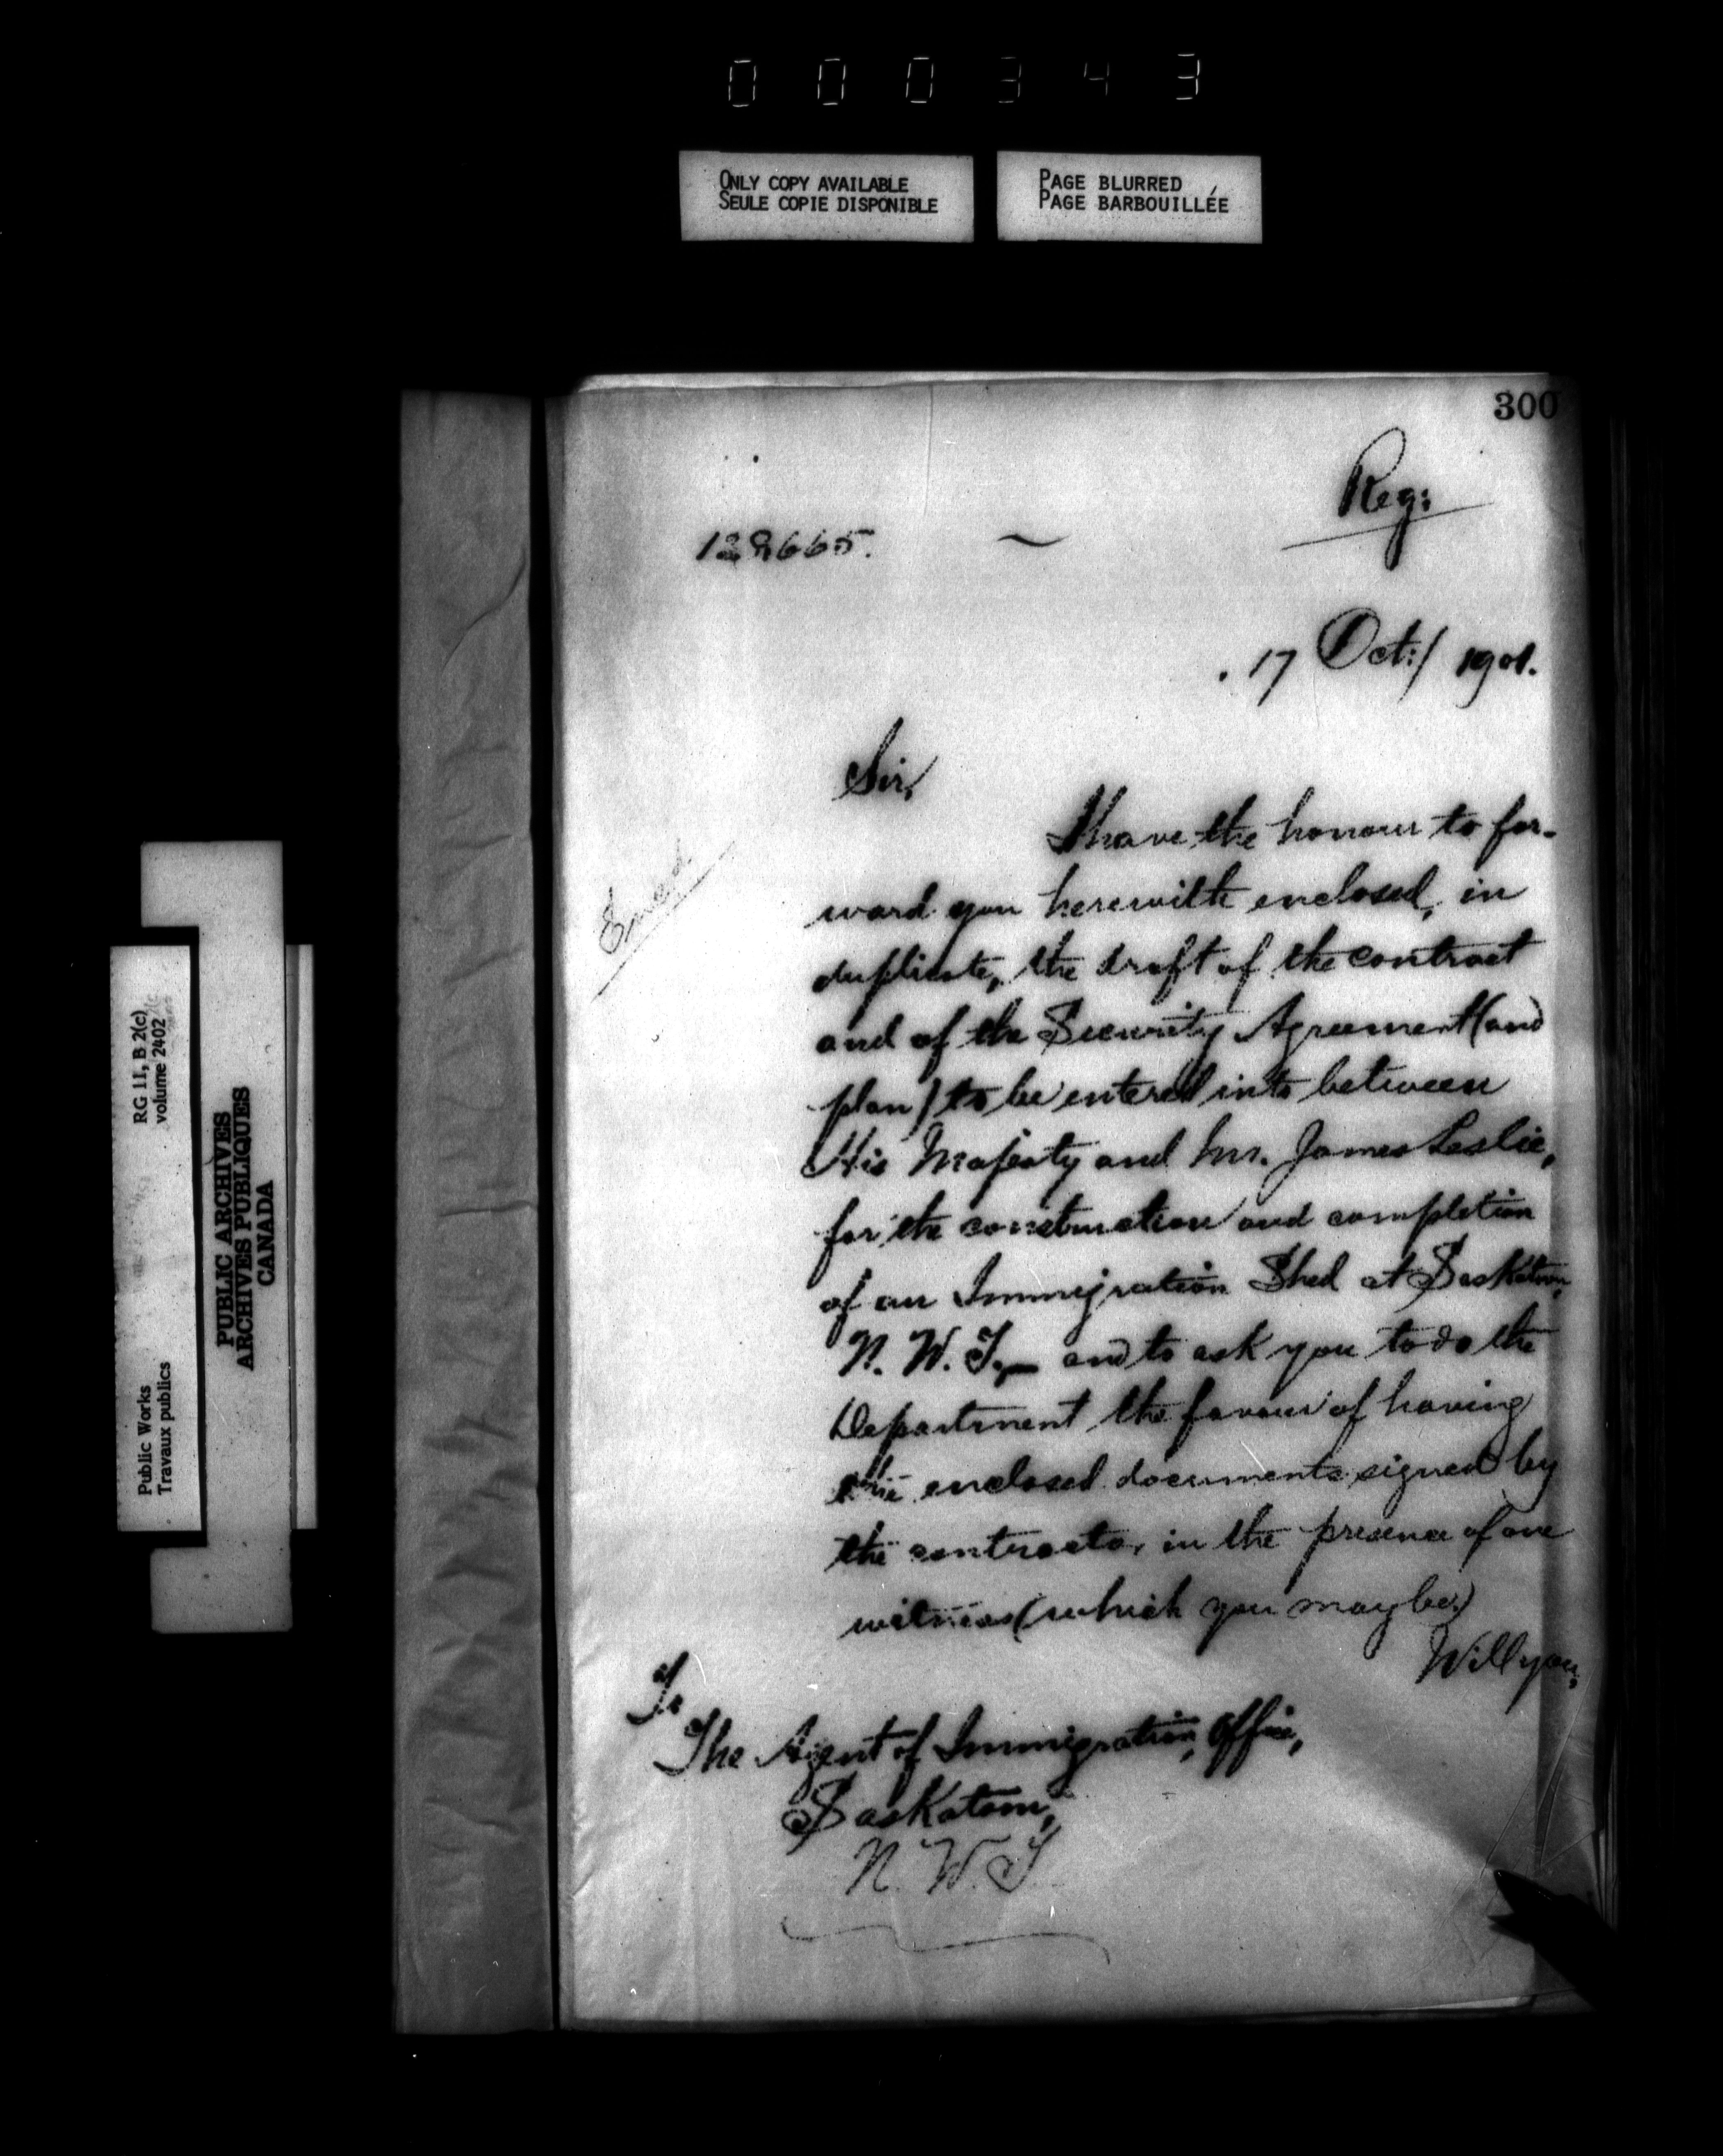 000343
ONLY COPY AVAILABLE
SEULE COPIE DISPONIBLE
PAGE BLURRED
PAGE BARBOUILLÉE
300
Reg:
128665.
17 Oct:/ 1901.
Sir,
I have the honour to for-
ward you herewith enclosed, in
duplicate, the draft of the contract
and of the Security Agreement (and
plan) to be entered into between
His Majesty and Mr. James Leslie,
for the construction and completion
of an Immigration Shed at Saskatoon,
N. W. T., — and to ask you to do the
Department the favour of having
the enclosed documents signed by
the contractor, in the presence of one
witness (which you may be)
Will you,
To
The Agent of Immigration, Office,
Saskatoon,
N. W. T
RG 11, B 2(c)
volume 2402
Public Works
Travaux publics
PUBLIC ARCHIVES
ARCHIVES PUBLIQUES
CANADA